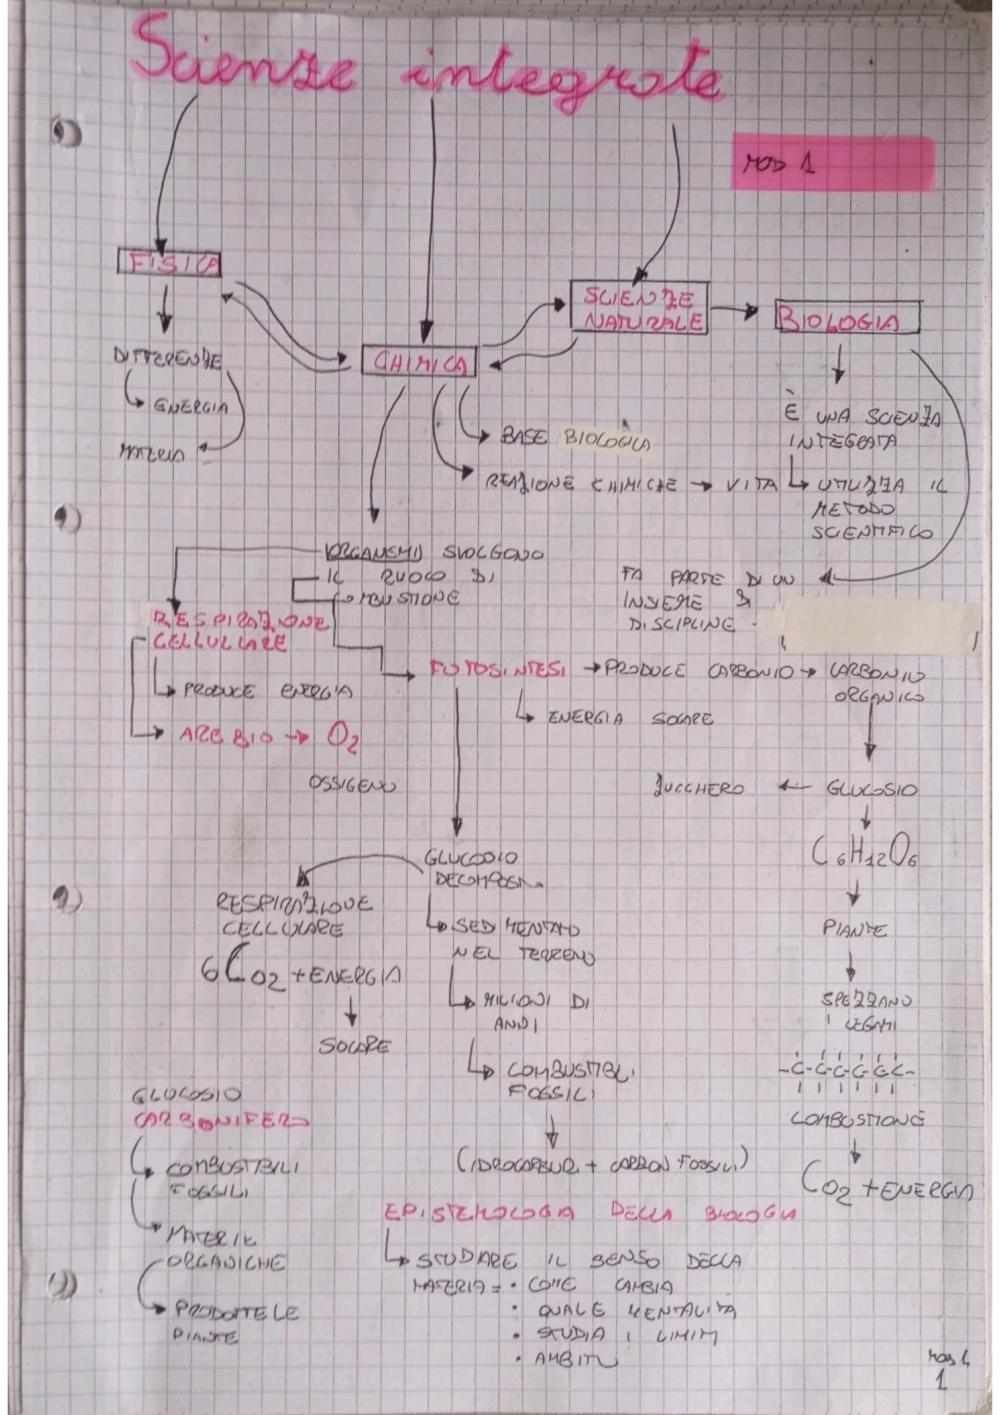 Scienze integrate
MOD 1
FISICA
SCIENZE
NATURALE
BIOLOGIA
CHIMICA
DIFFERENZE
ENERGIA
MATERIA
BASE BIOLOGIA
REAZIONE CHIMICHE → VITA
È UNA SCIENZA
INTEGRATA
UTILIZZA IL
METODO
SCIENTIFICO
ORGANISMI SVOLGONO
IL RUOLO DI
COMBUSTIONE
FA PARTE DI UN
INSIEME DI
DISCIPLINE
RESPIRAZIONE
CELLULLARE
PRODUCE ENERGIA
AREBIO → O2
OSSIGENO
FOTOSINTESI → PRODUCE CARBONIO → CARBONIO
ORGANICO
ENERGIA SOLARE
ZUCCHERO ← GLUCOSIO
C6H12O6
PIANTE
SPEZZANO
I LEGAMI
-C-C-C-C-C-C-
COMBUSTIONE
CO2 + ENERGIA
GLUCOSIO
DECOMPOSI
RESPIRAZIONE
CELLULARE
6CO2 + ENERGIA
SOLARE
SEDIMENTATO
NEL TERRENO
MILIONI DI
ANNI
COMBUSTIBILI
FOSSILI
(IDROCARBURI + CARBON FOSSILI)
GLUCOSIO
CARBONIFERO
COMBUSTIBILI
FOSSILI
MATERIE
ORGANICHE
PRODOTTE LE
PIANTE
EPISTEMOLOGIA DELLA BIOLOGIA
STUDARE IL SENSO DELLA
MATERIA = • COME CAMBIA
• QUALE MENTALITA
• STUDIA I LIMITI
• AMBITI
MOD 1
1